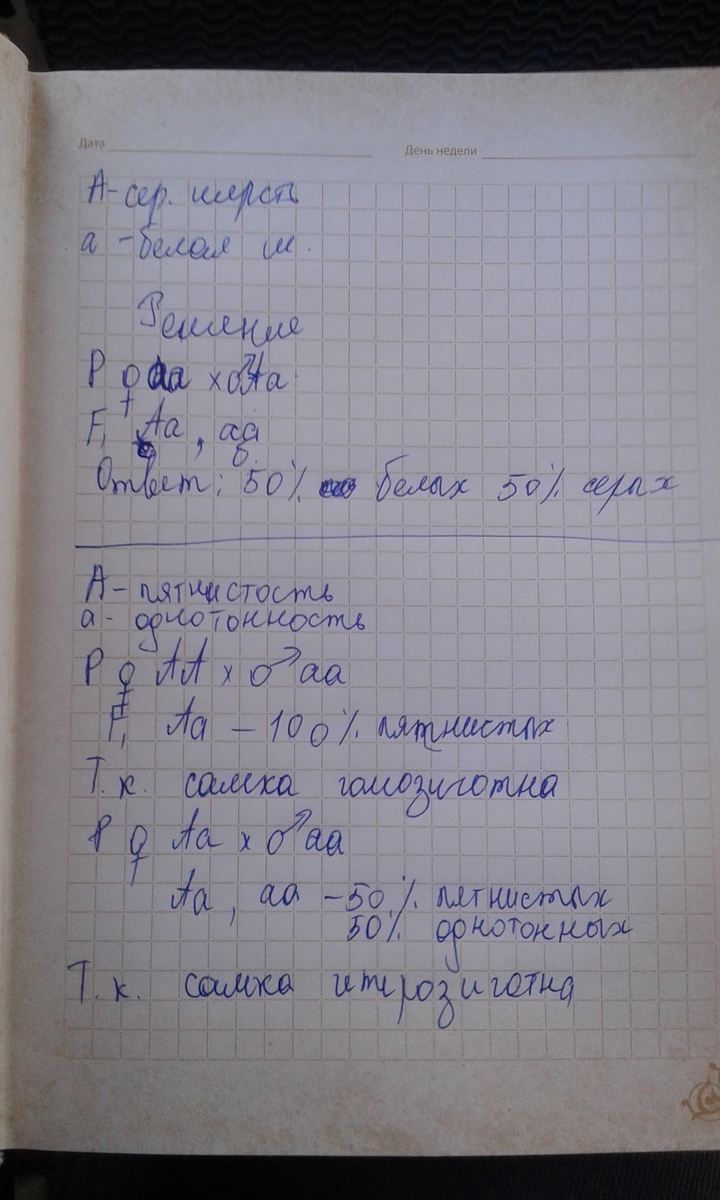 Дата День недели
А - сер. шерсть
а - белая ш.
Решение
P ♀ аа × ♂ Аа
F₁ Аа, аа
б.
Ответ: 50% белых 50% серых
А - пятнистость
а - однотонность
P ♀ АА × ♂ аа
F₁ Аа - 100% пятнистых
Т.к. самка гомозиготна
P ♀ Аа × ♂ аа
Аа, аа - 50% пятнистых
50% однотонных
Т.к. самка гетрозиготна